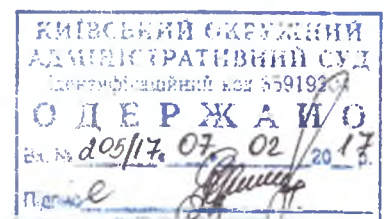 КИЇВСЬКИЙ ОКРУЖНИЙ
АДМІНІСТРАТИВНИЙ СУД
Ідентифікаційний код
ОДЕРЖАНО
Вх. № 205/17 07. 02 2017 р.
Підпис